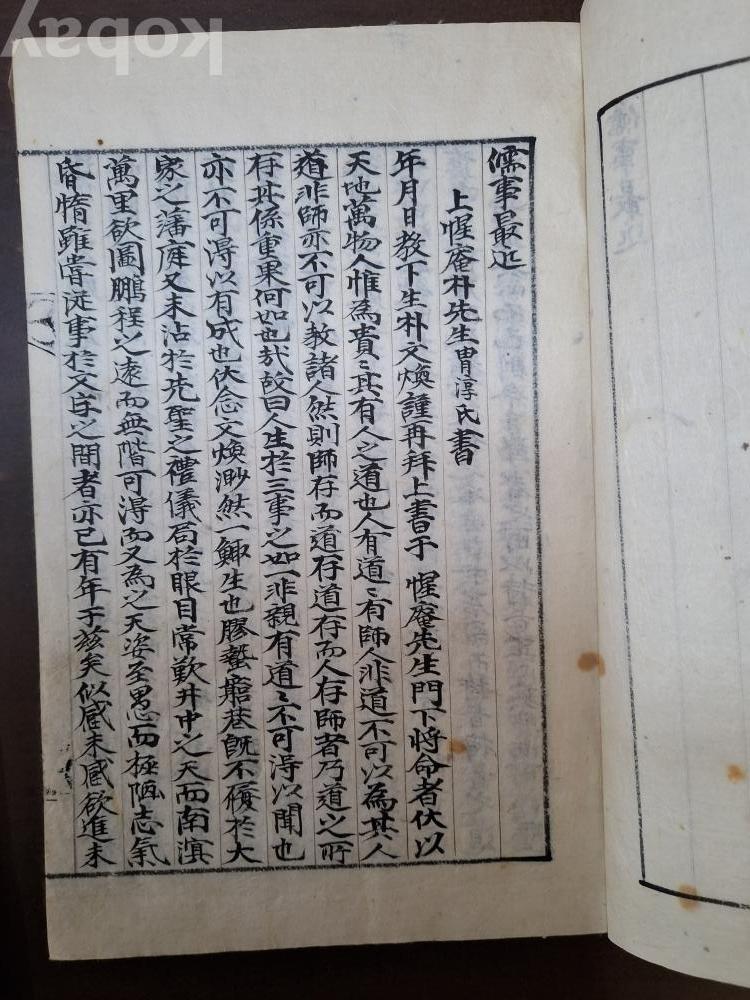 kobay
儒事最近
上惺庵朴先生胄淳氏書
年月日教下生朴文煥謹再拜上書于 惺庵先生門下將命者伏以
天地萬物人惟為貴〻其有人之道也人有道〻有師人非道不可以為其人
道非師亦不可以教諸人然則師存而道存道存而人存師者乃道之所
存其係重東何如也哉故曰人生於三事之如一非親有道〻不可淂以聞也
亦不可淂以有成也伏念文煥渺然一鯫生也膠蟄窮巷旣不殯於大
家之藩庭又未沾於先聖之禮儀局於眼目常歎井中之天而南溟
萬里欲圖鵬程之遠而無階可淂而又為之天姿至愚而極陋志氣
昏惰雖嘗従事於文字之間者亦已有年于玆矣似感未感欲進未